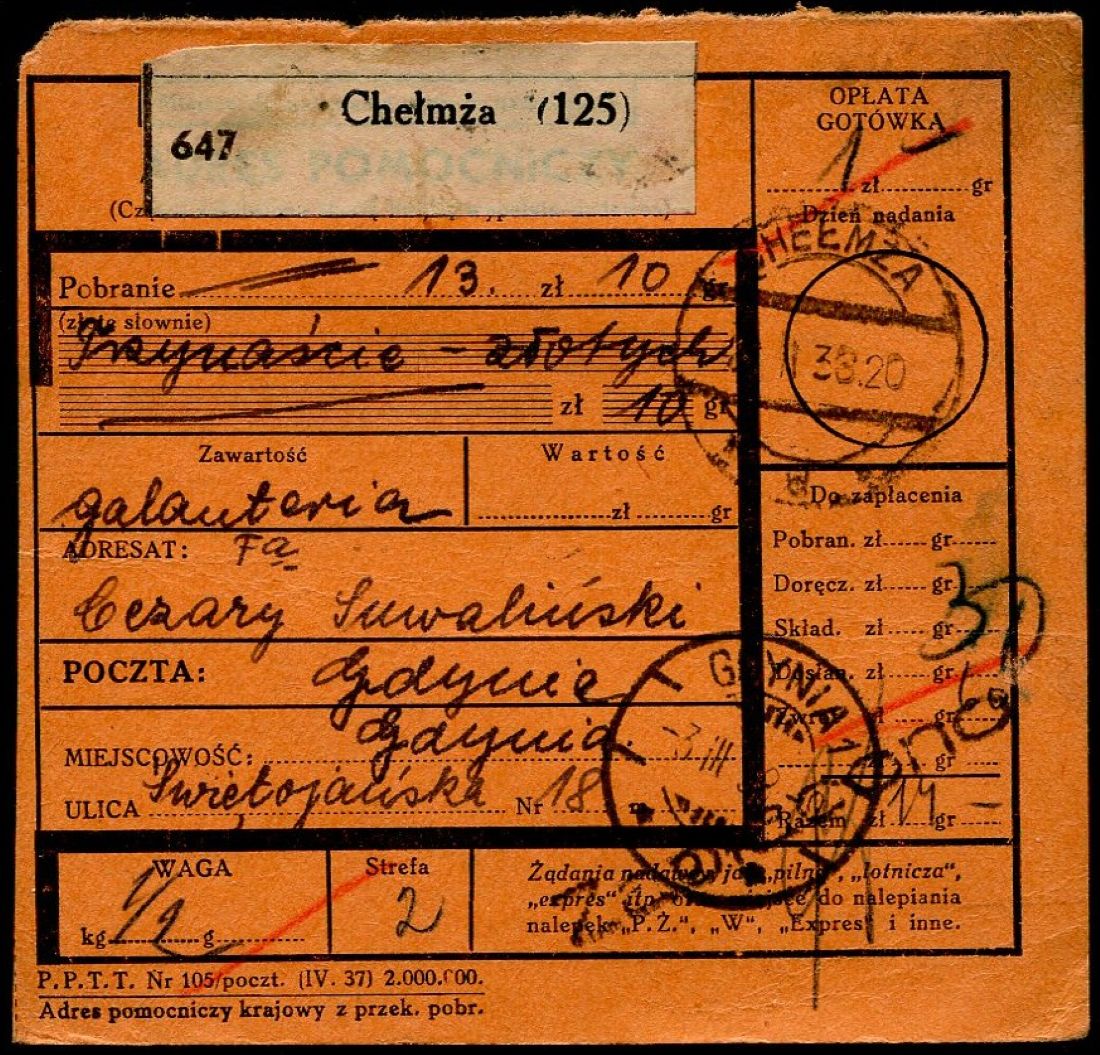 Chełmża (125)
647
POMOCNICZY
OPŁATA
GOTÓWKĄ
1 zł gr
Dzień nadania
CHEŁMŻA
38.20
Pobranie 13. zł 10 gr
(złote słownie)
Trzynaście — złotych
zł 10 gr
Zawartość
Wartość
galanteria
zł gr
ADRESAT: Fa
Cezary Suwaliński
POCZTA: Gdynie
MIEJSCOWOŚĆ: Gdynia.
ULICA Świętojańska Nr 18
Do zapłacenia
Pobran. zł gr
Doręcz. zł gr
Skład. zł gr
Dosłan. zł gr
zł gr
gr
Razem zł 14 gr —
GDYNIA 1
-3 III
WAGA
kg 1/2 g
Strefa
2
Żądania nadawcy jak „pilna", „lotnicza",
„expres" itp. oraz miejsce do nalepiania
nalepek „P.Ż.", „W", „Expres" i inne.
P.P.T.T. Nr 105/poczt. (IV. 37) 2.000.000.
Adres pomocniczy krajowy z przek. pobr.